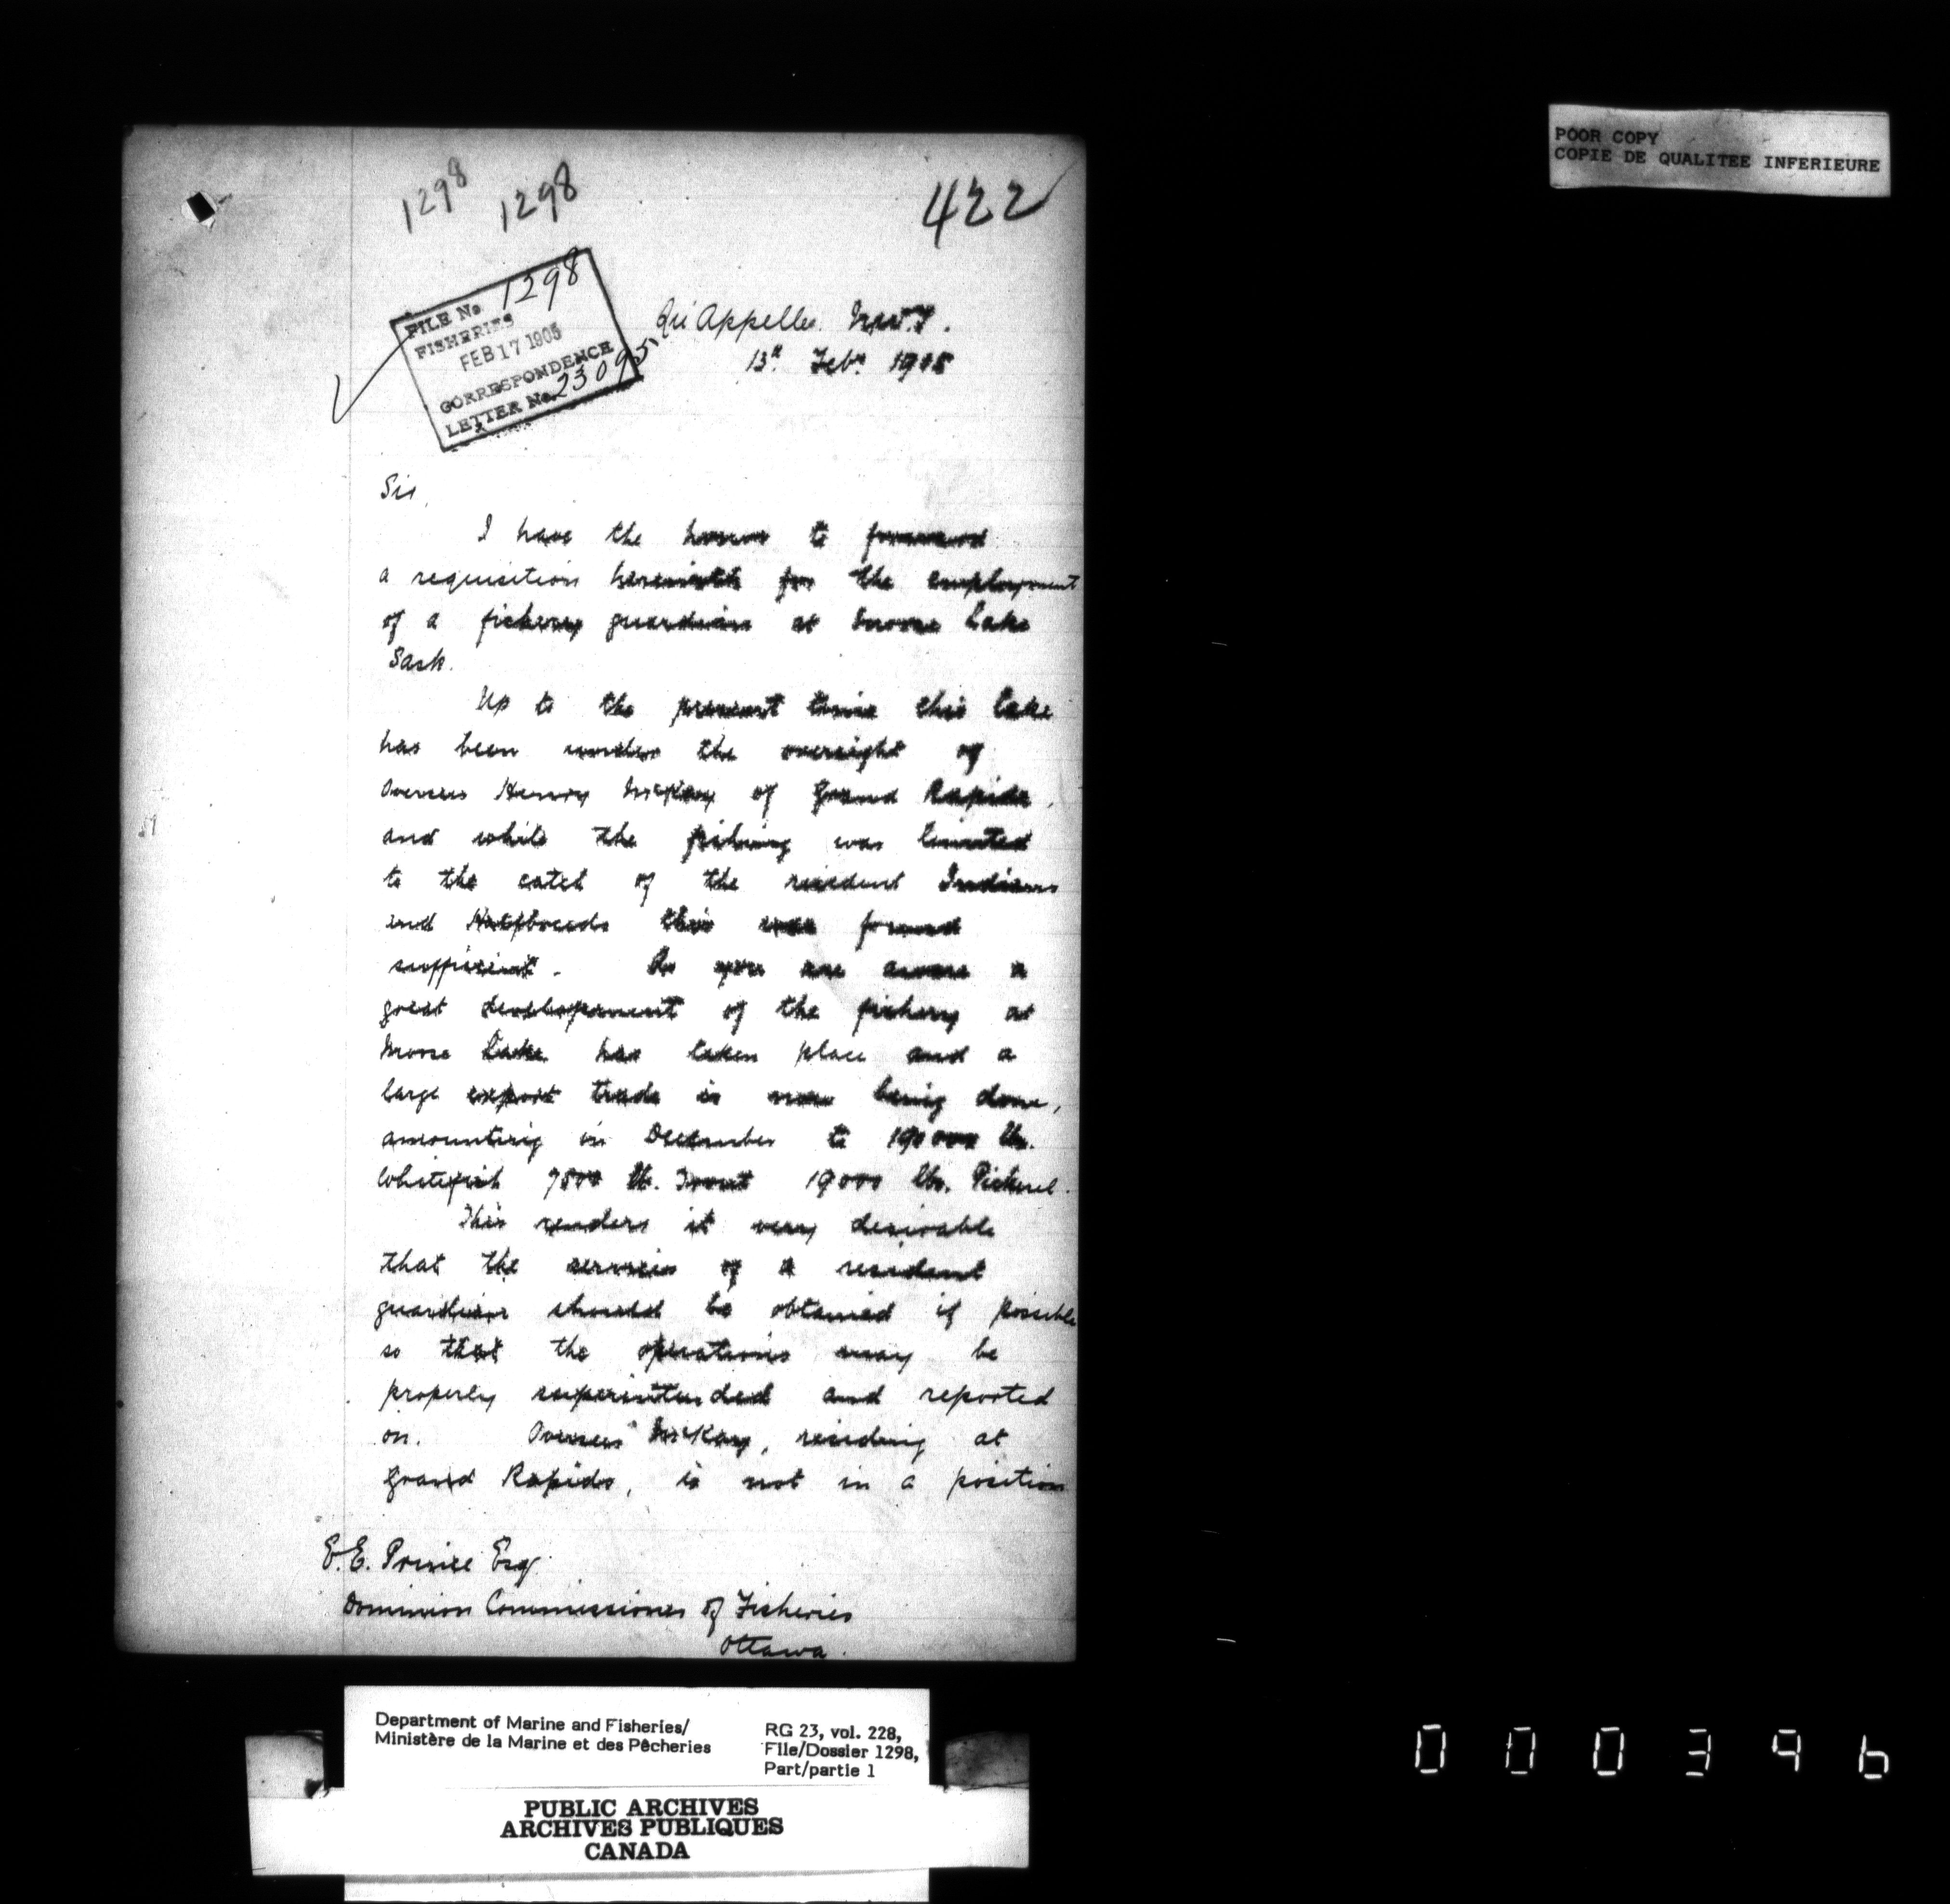 POOR COPY
COPIE DE QUALITEE INFERIEURE
1298 1298
422
FILE No 1298
FISHERIES
FEB 17 1905
CORRESPONDENCE
LETTER No. 23095
Qu'Appelle. N.W.T.
13th Feby 1905
Sir,
I have the honor to forward
a requisition herewith for the employment
of a fishery guardian at Moose Lake
Sask.
Up to the present time this lake
has been under the oversight of
Overseer Henry McKay of Grand Rapids,
and while the fishing was limited
to the catch of the resident Indians
and Halfbreeds this was found
sufficient. As you are aware a
great developement of the fishery at
Moose Lake has taken place and a
large export trade is now being done,
amounting in December to lbs.
Whitefish 7500 lb. Trout 19000 lbs. Pickerel.
This renders it very desirable
that the services of a resident
guardian should be obtained if possible
so that the operations may be
properly superintended and reported
on. Overseer McKay, residing at
Grand Rapids, is not in a position
E.E. Prince Esq.
Dominion Commissioner of Fisheries
Ottawa.
Department of Marine and Fisheries/
Ministère de la Marine et des Pêcheries
RG 23, vol. 228,
File/Dossier 1298,
Part/partie 1
PUBLIC ARCHIVES
ARCHIVES PUBLIQUES
CANADA
000396